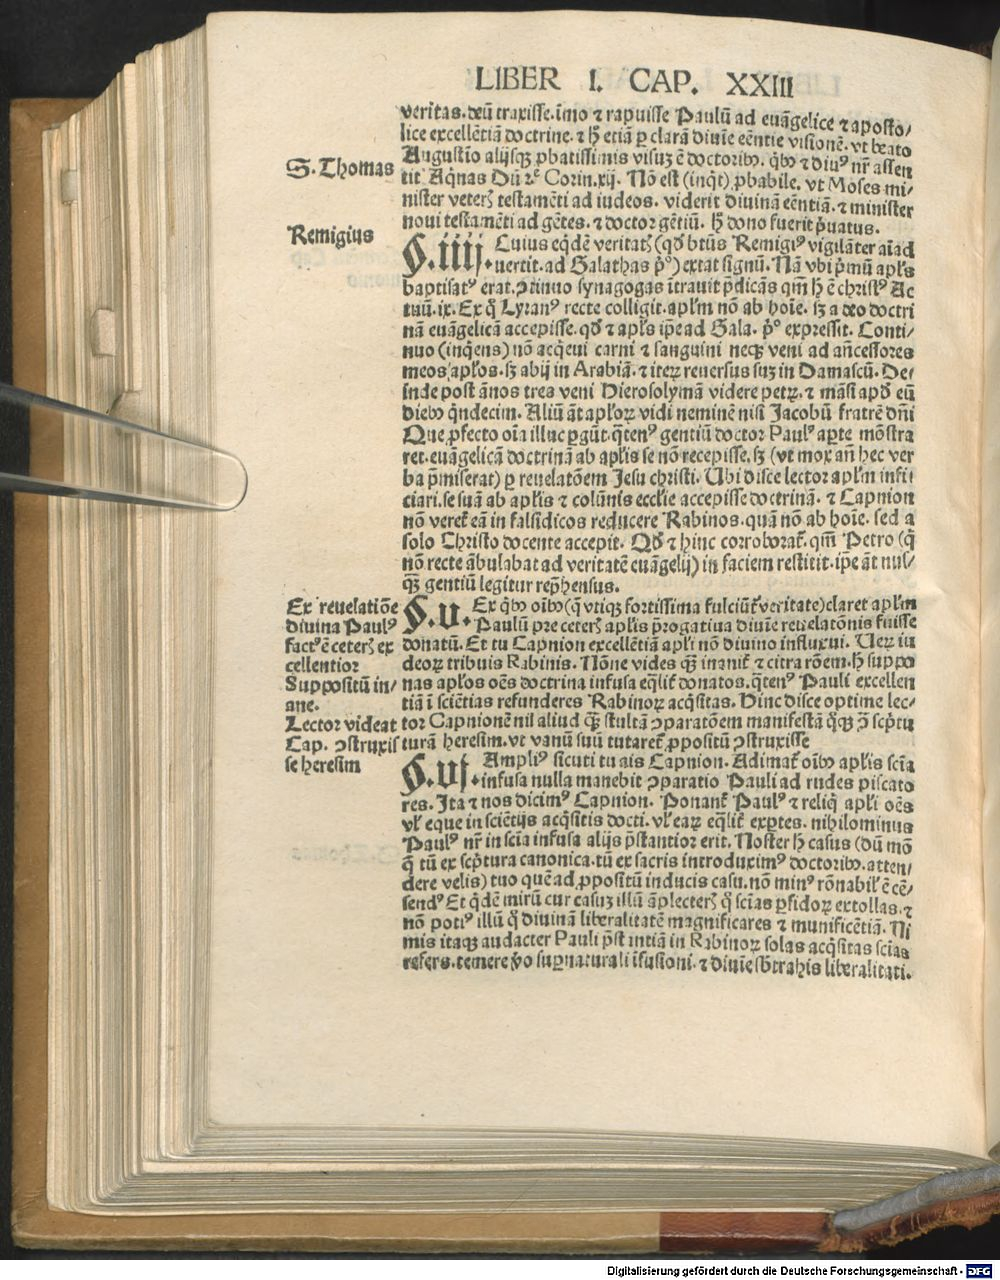 LIBER I. CAP. XXIII
veritas. deū traxisse. īmo ⁊ rapuisse Paulū ad euāgelice ⁊ aposto/
lice excellētiā doctrine. ⁊ ꝑ clarā diuīe eēntie visionē. vt beato
Augustīo alijsqꝫ ꝓbatissimis visuꝫ ē doctoribꝰ. ⁊ diuꝰ nr̄ assen
S. Thomas
tit Aqnas Corin. xij. Nō est (inqt) ꝓbabile. vt Moses mi/
nister veterꝭ testamēti ad iudeos. viderit diuinā eēntiā. ⁊ minister
noui testamēti ad gētes. ⁊ doctor gētiū. dono fuerit p̄uatus.
Remigius
§. iiij. Cuius eqdē veritatꝭ (qđ btūs Remigiꝰ vigilāter aīad
uertit. ad Galathas p̄º) extat signū. Nā vbi p̄mū apl̄s
baptisatꝰ erat. ꝯtinuo synagogas ītrauit p̄dicās qm̄ ē christꝰ Ac
tuū. ix. Ex Lyranꝰ recte colligit. apl̄m nō ab hoīe. sꝫ a deo doctri
nā euāgelicā accepisse. qđ ⁊ apl̄s ip̄e ad Gala. p̄º expressit. Conti/
nuo (inqens) nō acqeui carni ⁊ sanguini necqꝫ veni ad añcessores
meos apl̄os. sꝫ abij in Arabiā. ⁊ iteꝝ reuersus suꝫ in Damascū. De/
inde post ānos tres veni Hierosolymā videre petꝝ. ⁊ māsi apđ eū
diebꝰ qndecim. Aliū āt apl̄oꝝ vidi neminē nisi Jacobū fratrē dn̄i
Que ꝓfecto oīa illuc ꝑgūt. qtenꝰ gentiū doctor Paulꝰ aꝑte mōstra
ret. euāgelicā doctrinā ab apl̄is se nō recepisse. sꝫ (vt mox an̄ hec ver
ba p̄miserat) ꝑ reuelatōem Jesu christi. Ubi disce lector apl̄m infi/
ciari. se suā ab apl̄is ⁊ colūnis eccl̄ie accepisse doctrinā. ⁊ Capnion
nō veret̄ eā in falsidicos reducere Rabinos. quā nō ab hoīe. sed a
solo Christo docente accepit. Qđ ⁊ hinc corroborat̄. qm̄ Petro (q
nō recte ābulabat ad veritatē euāgelij) in faciem restitit. ip̄e āt nus/
qꝫ gentiū legitur rep̄hensus.
Ex reuelatiōe
diuina Paulꝰ
factꝰ ē ceterꝭ ex
cellentior
Suppositū in/
ane.
Lector videat
Cap. ꝯstruxis
se heresim
§. v. Ex qbꝰ oībꝰ (q vtiqꝫ fortissima fulciūt̄ veritate) claret apl̄m
Paulū pre ceterꝭ apl̄is p̄rogatiua diuīe reuelatōnis fuisse
donatū. Et tu Capnion excellētiā apl̄i nō diuino influxui. Ueꝝ iu
deoꝝ tribuis Rabinis. Nōne vides qꝫ inanit̄ ⁊ citra rōem. suppo
nas apl̄os oēs doctrina infusa eqlit̄ donatos. qtenꝰ Pauli excellen
tiā ī sciētias refunderes Rabinoꝝ acqsitas. Hinc disce optime lec/
tor Capnionē nil aliud qꝫ stultā ꝯparatōem manifestā qꝫ ꝯ̄ scp̄tu
turā heresim. vt vanū suū tutaret̄ ꝓpositū ꝯstruxisse
§. vj. Ampliꝰ sicuti tu ais Capnion. Adimat̄ oībꝰ apl̄is scīa
infusa nulla manebit ꝯparatio Pauli ad rudes piscato
res. Ita ⁊ nos dicimꝰ Capnion. Ponant̄ Paulꝰ ⁊ reliq apl̄i oēs
vl̄ eque in sciētijs acqsitis docti. vl̄ eaꝝ eqlit̄ exꝑtes. nihilominus
Paulꝰ nr̄ in scīa infusa alijs p̄stantior erit. Noster casus (dū mō
q tū ex scp̄tura canonica. tū ex sacris introduximꝰ doctoribꝰ. atten/
dere velis) tuo quē ad ꝓpositū inducis casu. nō minꝰ rōnabil̄ ē cē/
sendꝰ Et qdē mirū cur casuꝫ illū āplecterꝭ q scīas ꝑfidoꝝ extollas. ⁊
nō potiꝰ illū q diuinā liberalitatē magnificares ⁊ munificētiā. Ni
mis itaqꝫ audacter Pauli p̄stantiā in Rabinoꝝ solas acqsitas scīas
refers. temere ꝟo suꝑnaturali īfusioni. ⁊ diuīe sb̄trahis liberalitati.
Digitalisierung gefördert durch die Deutsche Forschungsgemeinschaft - DFG